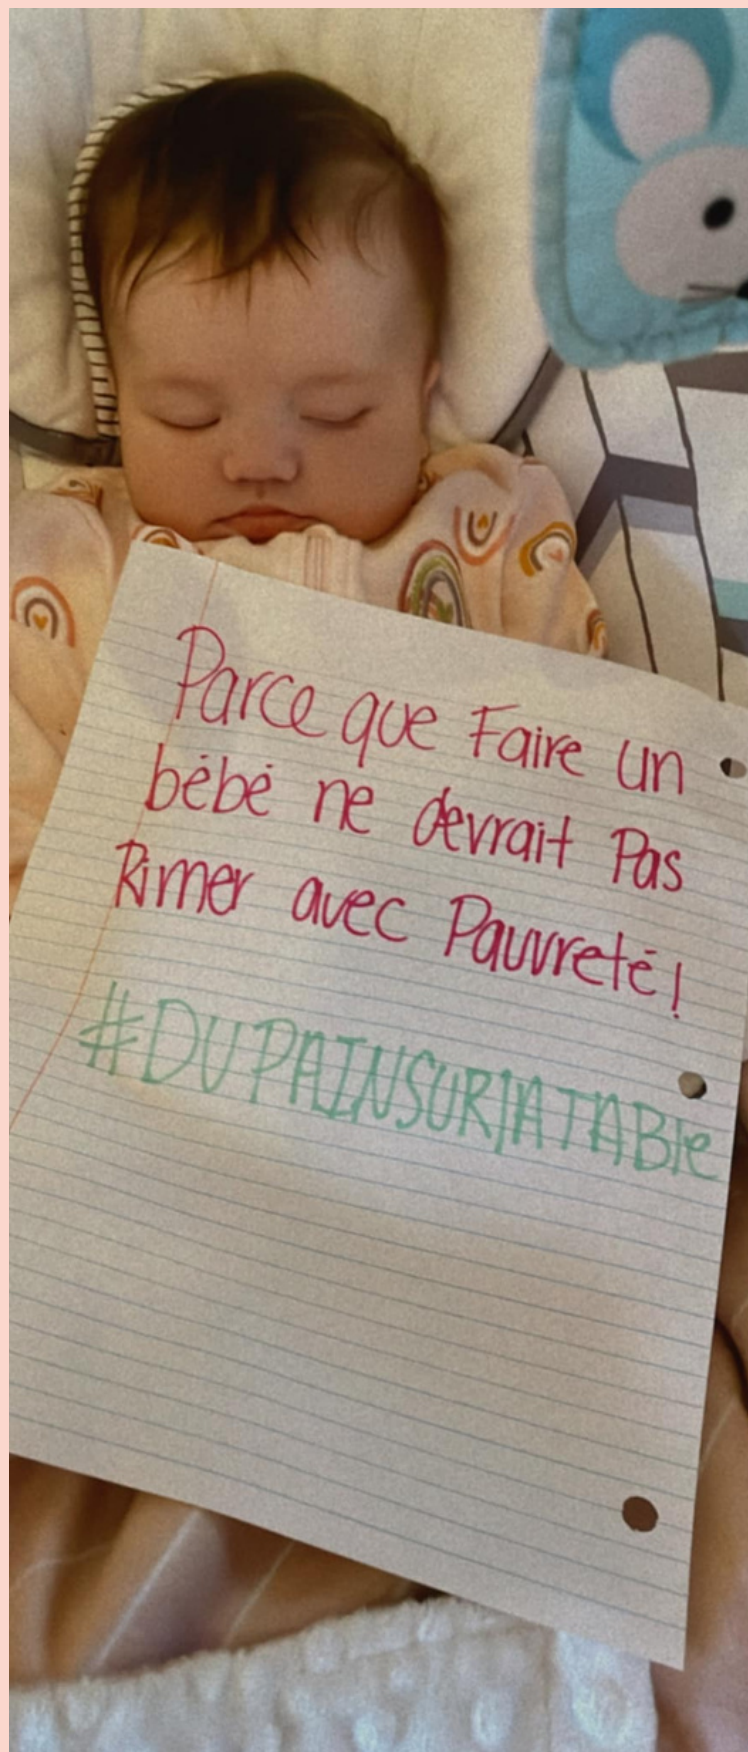 Parce que Faire un
bébé ne devrait Pas
Rimer avec Pauvreté!
#DUPAINSURlATABle